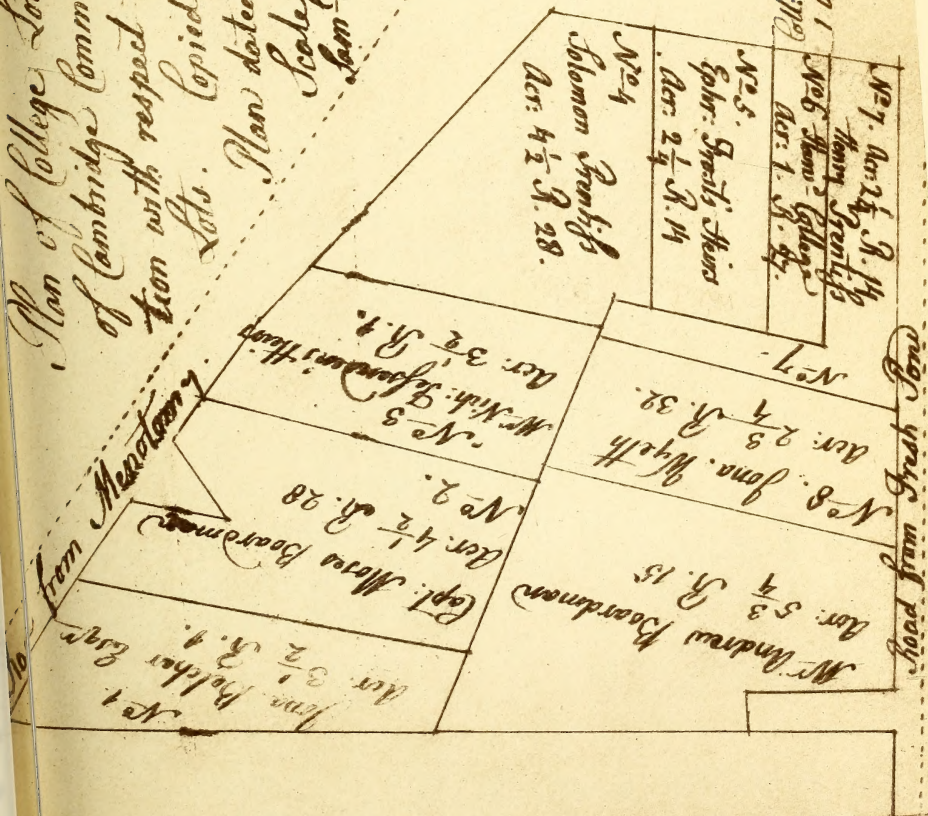 Plan of College Lo
of Cambridge Comm
tion with respect
Lots. Copied
Plan dated
Scale
Sam
from Menotomy
Road from Fresh Pond
No. 1
Jona. Belcher Esqr.
Acr. 3 1/2 R. 9.
Capt. Moses Boardman
Acr. 4 1/2 R. 28
No. 2.
No. 3
Mr. Nich. Fessenden's Heirs
Acr. 3 1/2 R. 9.
No. 4
Solomon Prentiss
Acr. 4 1/2 R. 28.
No. 5.
Heirs
Acr. 2 1/4 R. 14
No. 6 College
Acr. 1. R.
No. 7. Acr. 2 1/4 R. 14
Henry Prentiss
No. 7.
No. 8. Jona. Wyeth
Acr. 2 3/4 R. 32.
Mr. Andrew Boardman
Acr. 5 3/4 R. 15